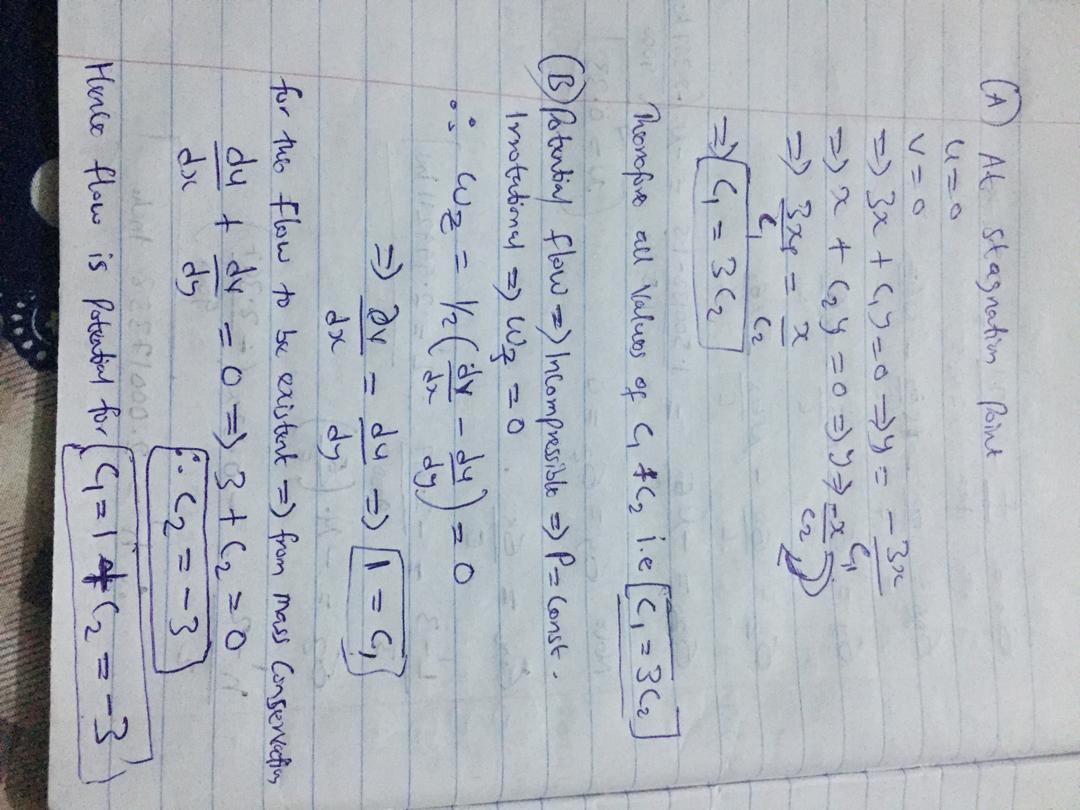 (A) At stagnation point
u = 0
v = 0
⇒ 3x + C₁y = 0 ⇒ y = -3x/C₁
⇒ x + C₂y = 0 ⇒ y ⇒ -x/C₂
⇒ 3x/C₁ = x/C₂
⇒ C₁ = 3C₂
Therefore all values of C₁ & C₂ i.e C₁ = 3C₂
(B) Potential flow ⇒ Incompressible ⇒ P = Const.
Irrotational ⇒ ω_z = 0
∴ ω_z = 1/2 (dv/dx - du/dy) = 0
⇒ ∂v/dx = du/dy ⇒ 1 = C₁
for the flow to be existent ⇒ from mass Conservation
du/dx + dv/dy = 0 ⇒ 3 + C₂ = 0
∴ C₂ = -3
Hence flow is Potential for C₁ = 1 & C₂ = -3